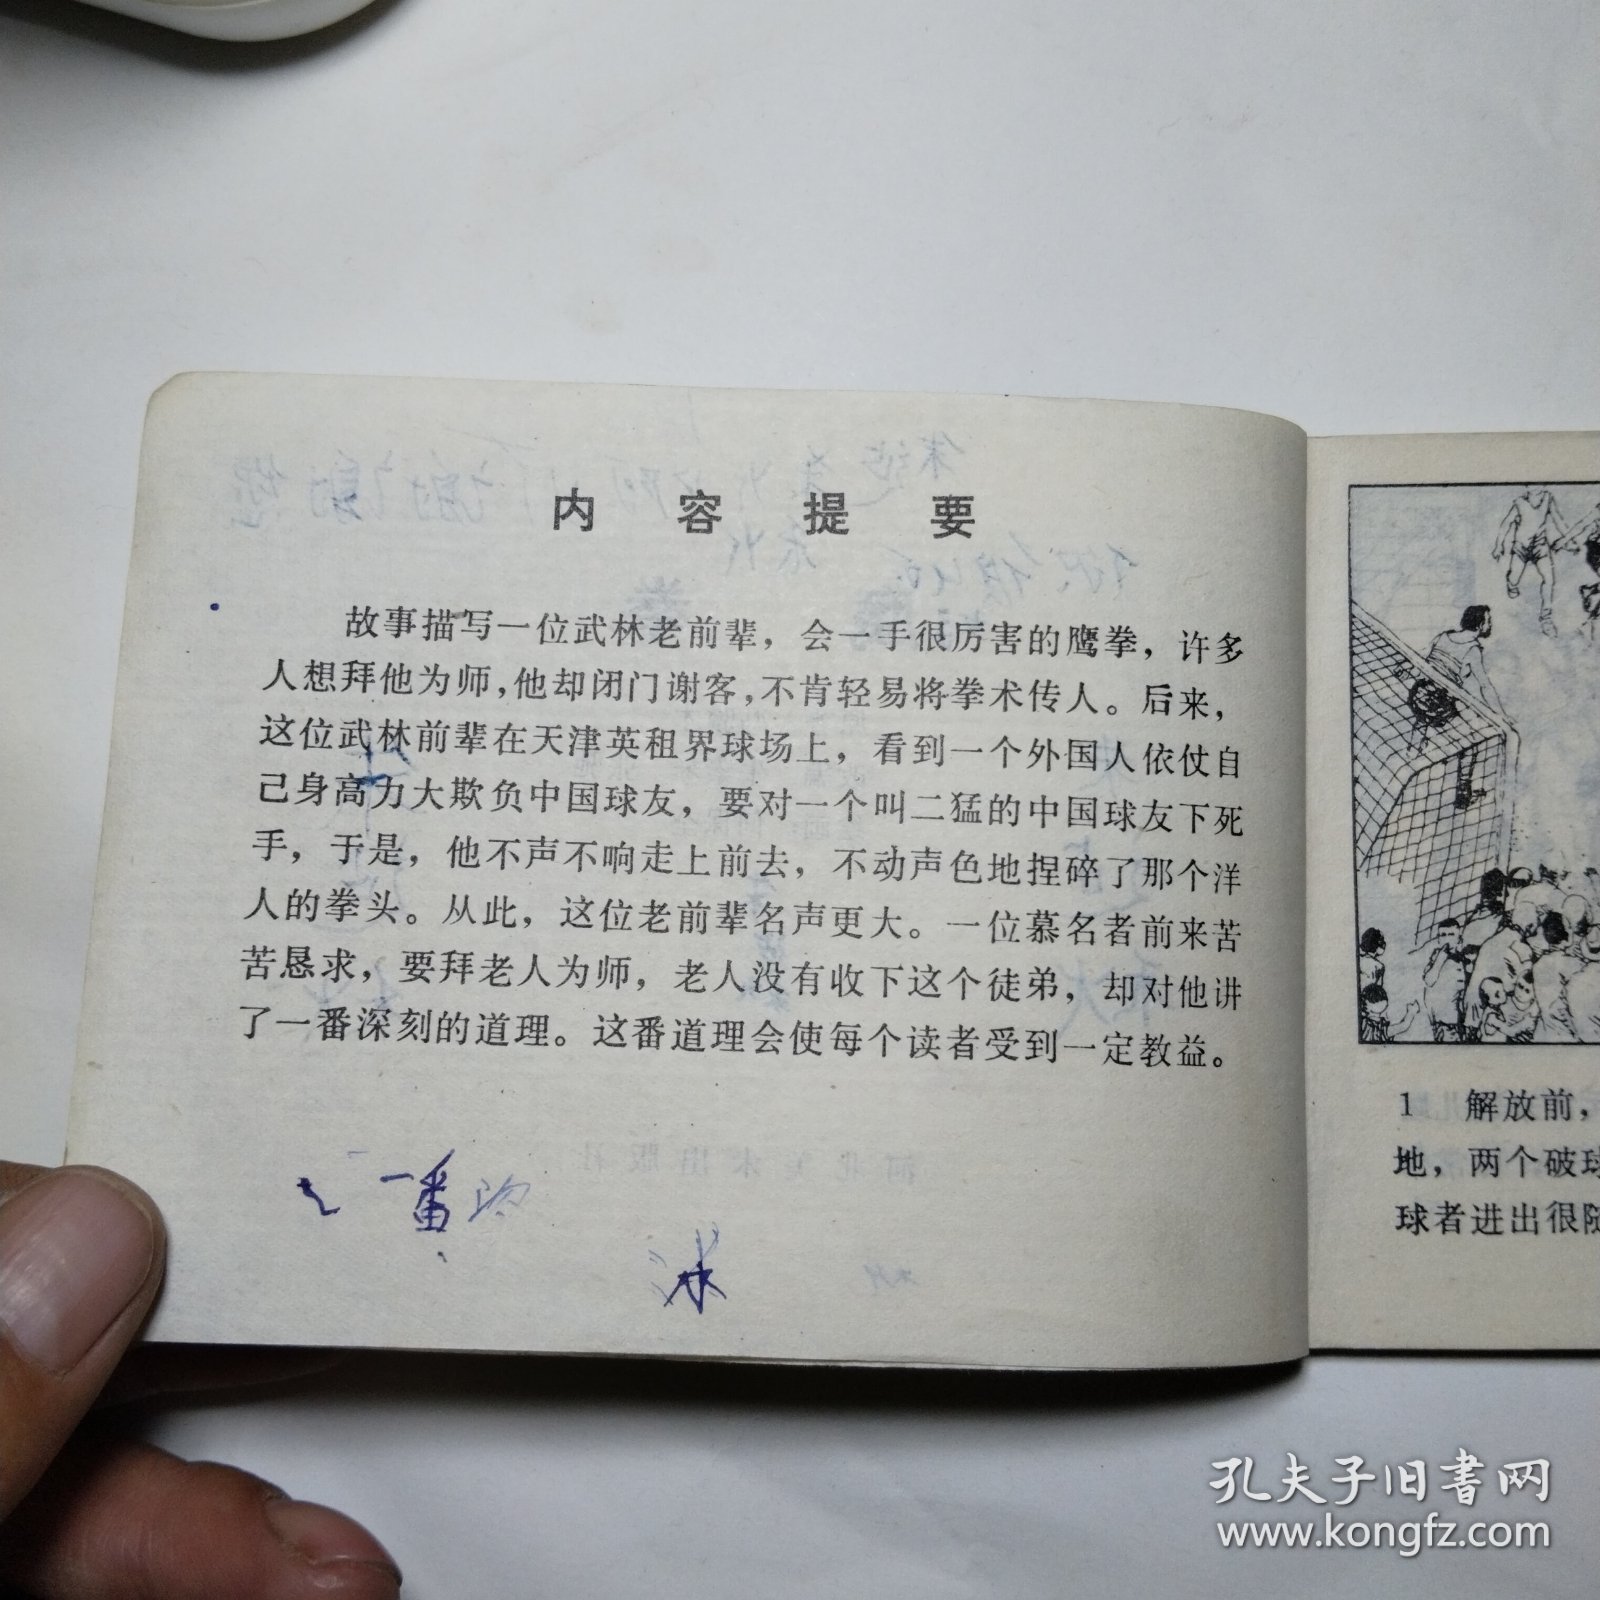 内容提要
故事描写一位武林老前辈，会一手很厉害的鹰拳，许多
人想拜他为师，他却闭门谢客，不肯轻易将拳术传人。后来，
这位武林前辈在天津英租界球场上，看到一个外国人依仗自
己身高力大欺负中国球友，要对一个叫二猛的中国球友下死
手，于是，他不声不响走上前去，不动声色地捏碎了那个洋
人的拳头。从此，这位老前辈名声更大。一位慕名者前来苦
苦恳求，要拜老人为师，老人没有收下这个徒弟，却对他讲
了一番深刻的道理。这番道理会使每个读者受到一定教益。
一番
冰
1 解放前，
地，两个破球
球者进出很随
孔夫子旧书网
www.kongfz.com